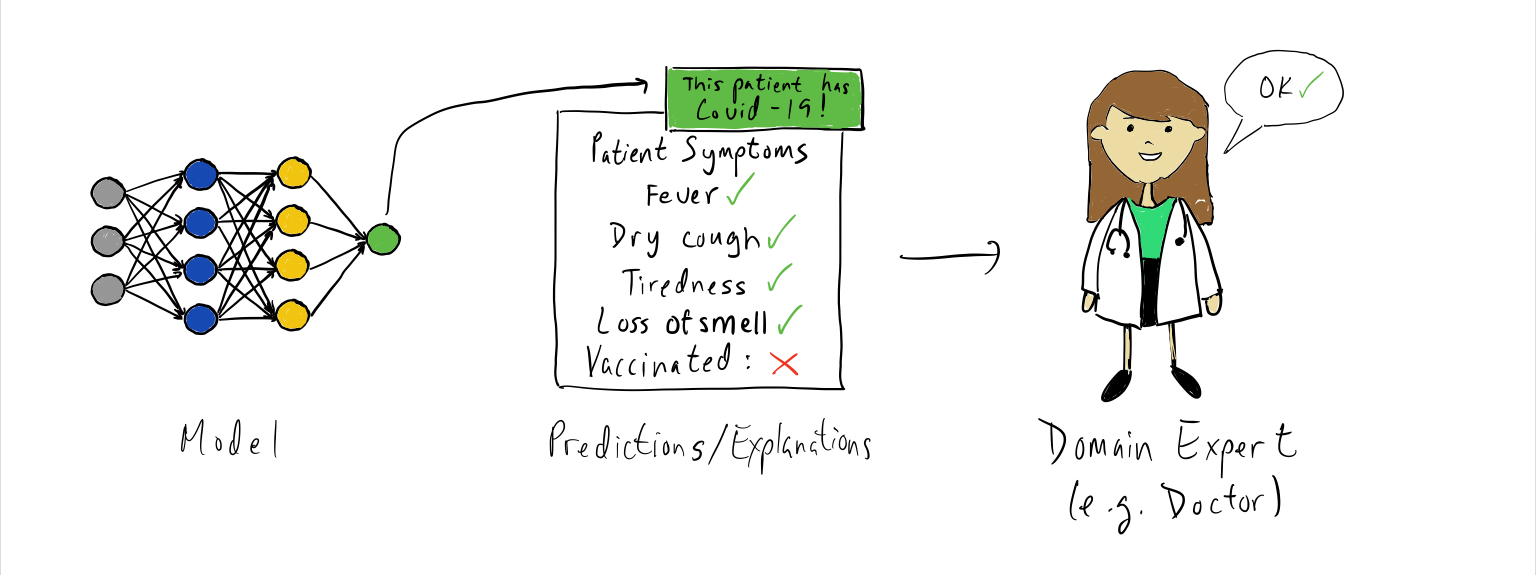 This patient has
Covid-19!
Patient Symptoms
Fever ✓
Dry cough ✓
Tiredness ✓
Loss of smell ✓
Vaccinated: ✗
OK ✓
Model
Predictions/Explanations
Domain Expert
(e.g. Doctor)